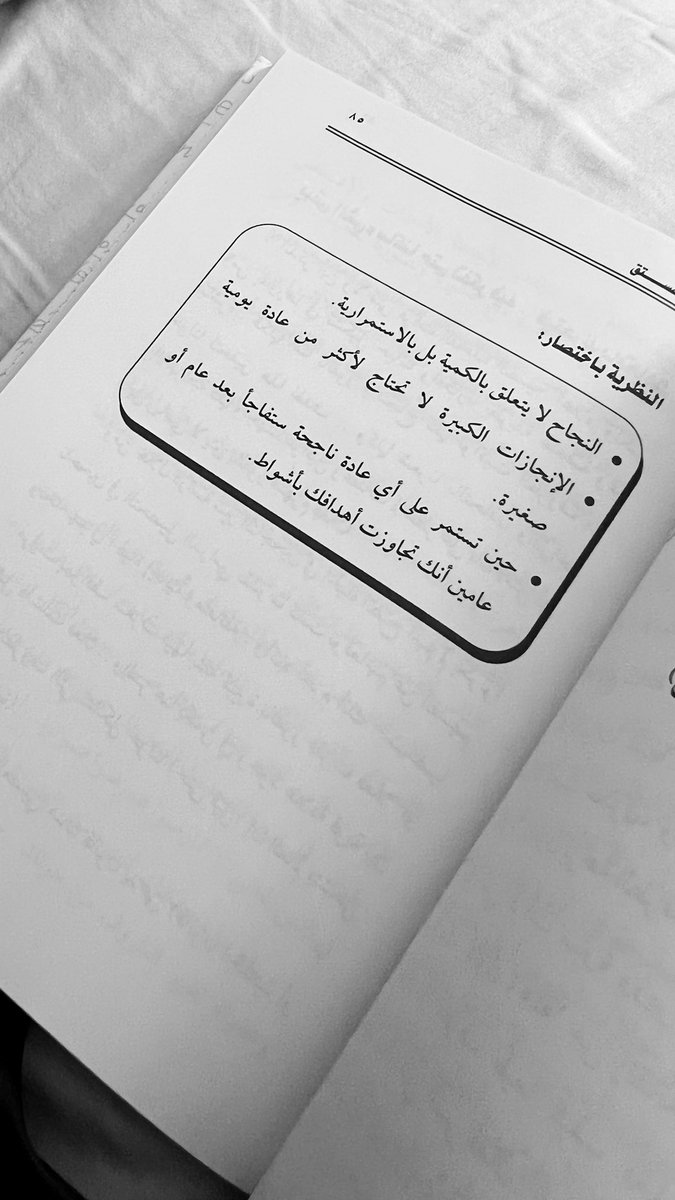 ٨٥
النظرية باختصار:
• النجاح لا يتعلق بالكمية بل بالاستمرارية.
• الإنجازات الكبيرة لا تحتاج لأكثر من عادة يومية
صغيرة.
• حين تستمر على أي عادة ناجحة ستفاجأ بعد عام أو
عامين أنك تجاوزت أهدافك بأشواط.